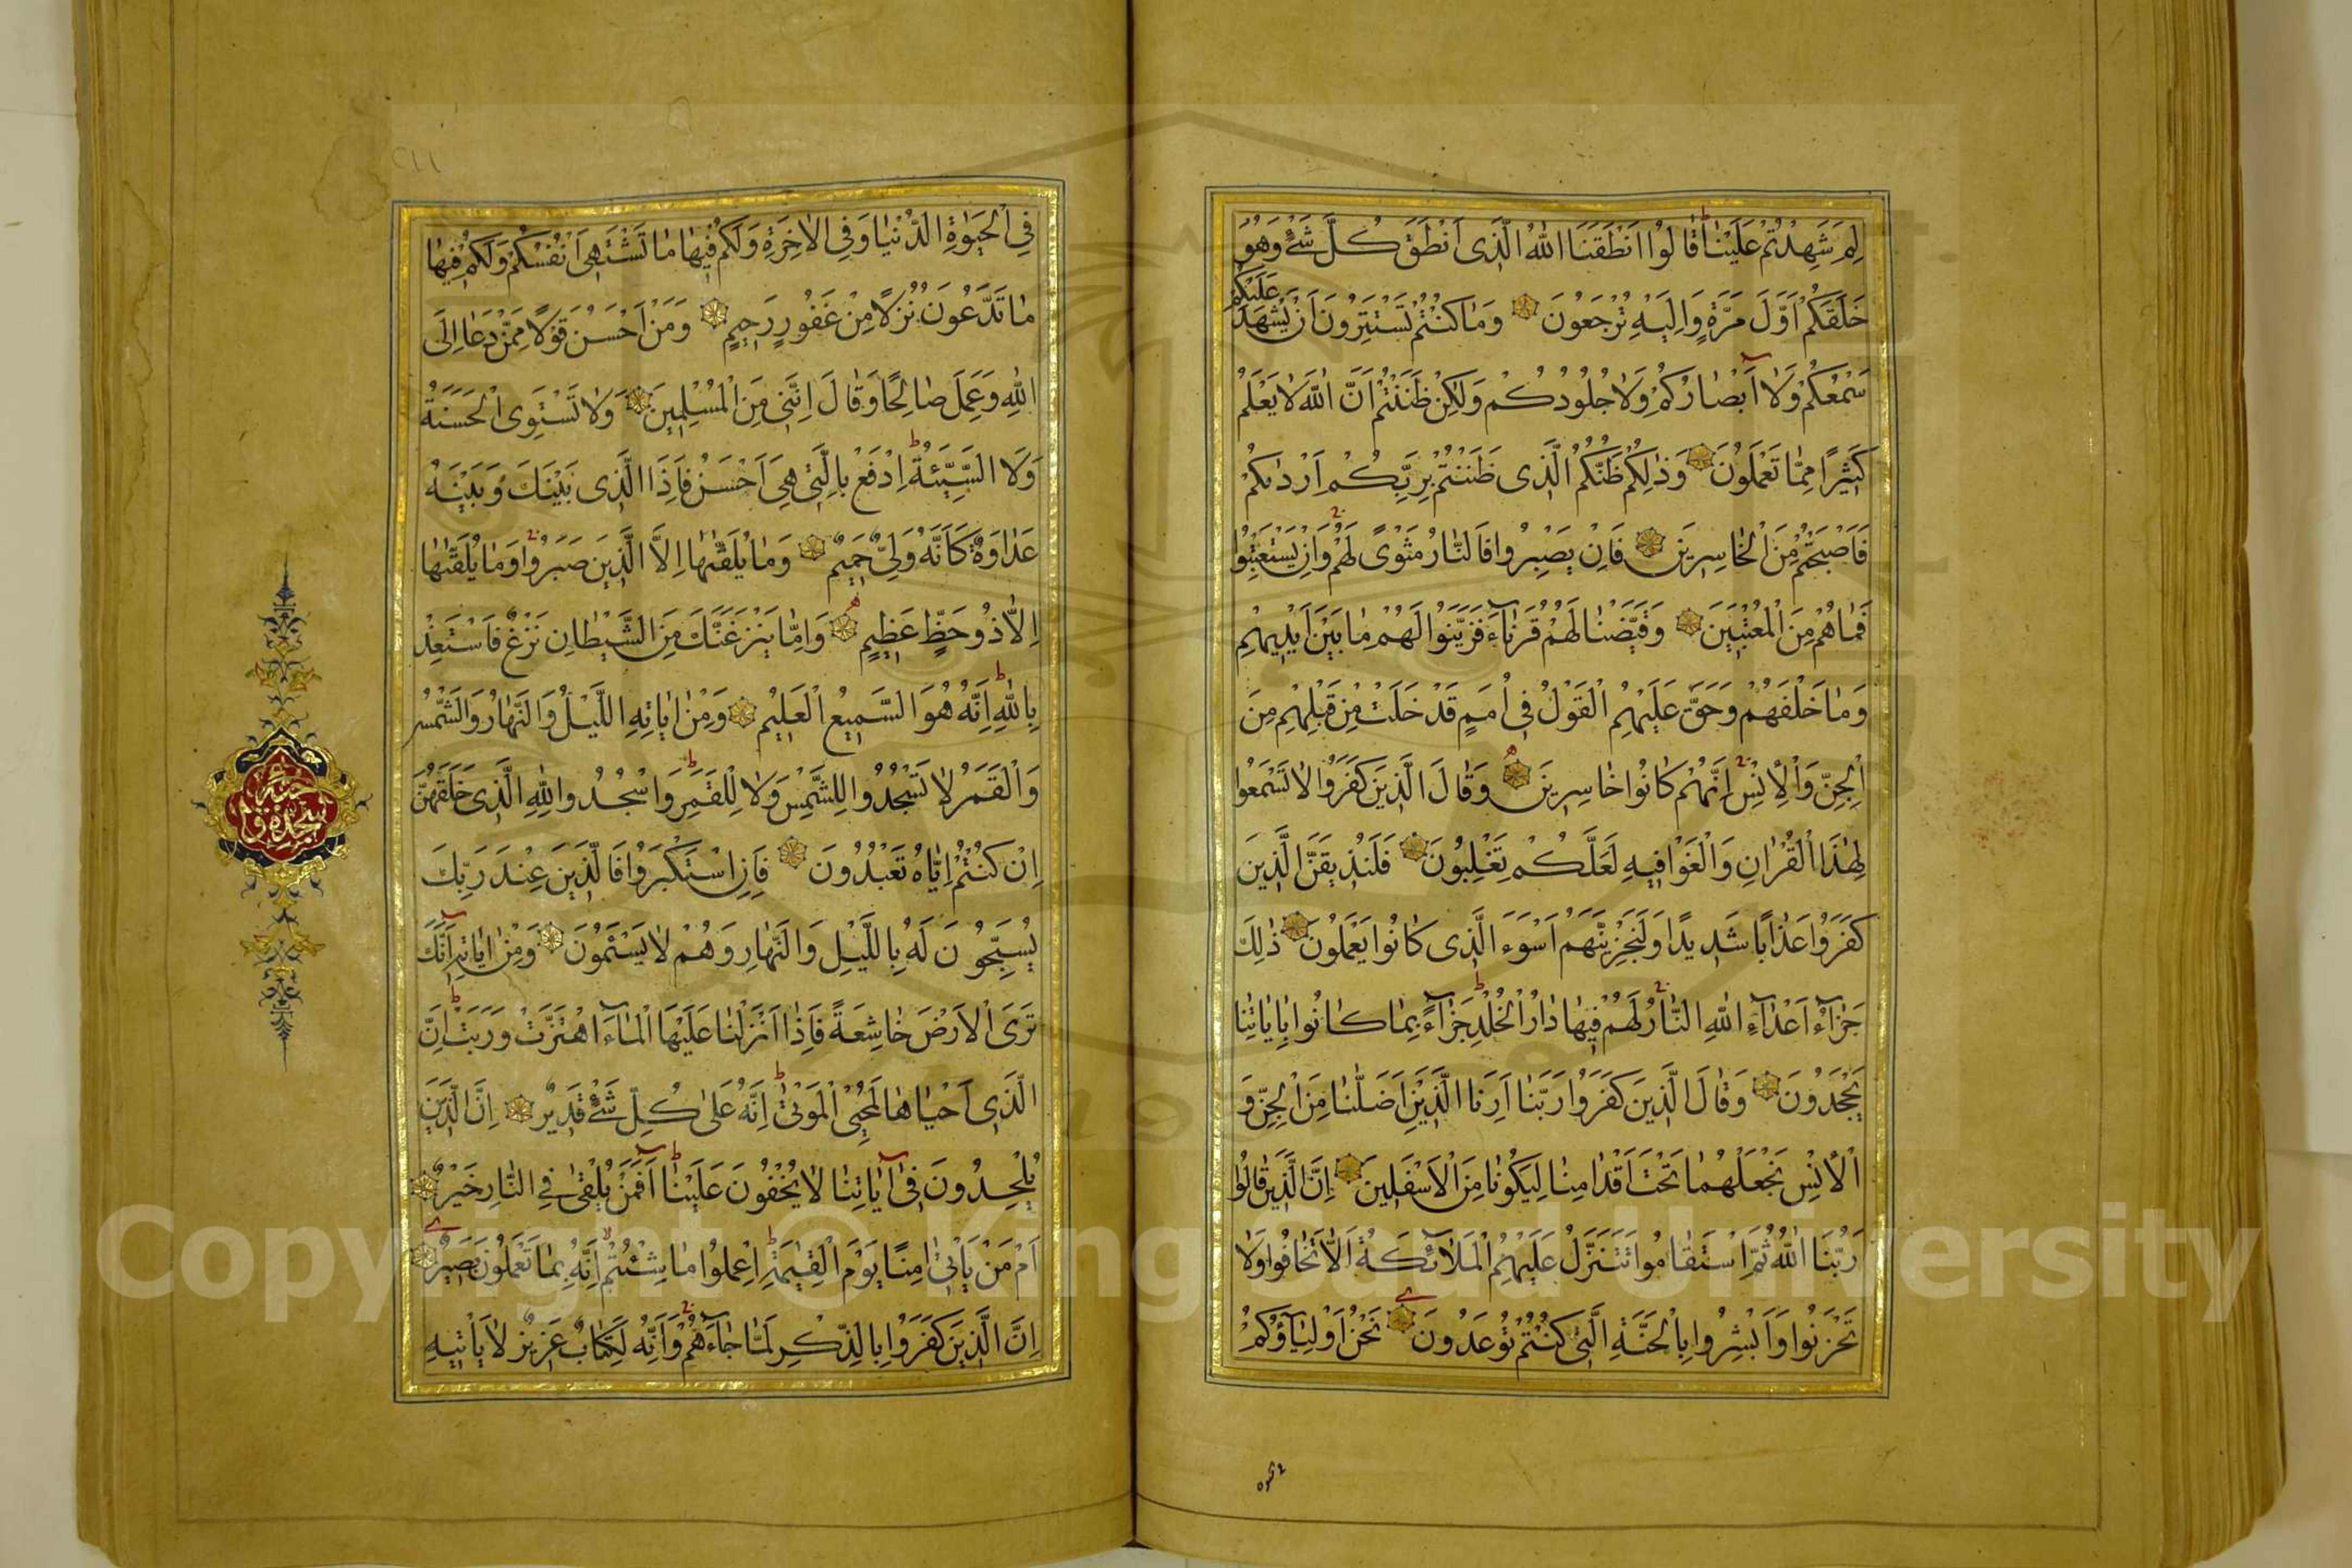 لِمَ شَهِدْتُمْ عَلَيْنَا قَالُوا اَنْطَقَنَا اللهُ الَّذِى اَنْطَقَ كُلَّ شَىْءٍ وَهُوَ
خَلَقَكُمْ اَوَّلَ مَرَّةٍ وَاِلَيْهِ تُرْجَعُونَ وَمَا كُنْتُمْ تَسْتَتِرُونَ اَنْ يَشْهَدَ عَلَيْكُمْ
سَمْعُكُمْ وَلَا اَبْصَارُكُمْ وَلَا جُلُودُكُمْ وَلٰكِنْ ظَنَنْتُمْ اَنَّ اللهَ لَا يَعْلَمُ
كَثِيرًا مِمَّا تَعْمَلُونَ وَذٰلِكُمْ ظَنُّكُمُ الَّذِى ظَنَنْتُمْ بِرَبِّكُمْ اَرْدٰيكُمْ
فَاَصْبَحْتُمْ مِنَ الْخَاسِرِينَ فَاِنْ يَصْبِرُوا فَالنَّارُ مَثْوًى لَهُمْ وَاِنْ يَسْتَعْتِبُوا
فَمَا هُمْ مِنَ الْمُعْتَبِينَ وَقَيَّضْنَا لَهُمْ قُرَنَاءَ فَزَيَّنُوا لَهُمْ مَا بَيْنَ اَيْدِيهِمْ
وَمَا خَلْفَهُمْ وَحَقَّ عَلَيْهِمُ الْقَوْلُ فِى اُمَمٍ قَدْ خَلَتْ مِنْ قَبْلِهِمْ مِنَ
الْجِنِّ وَالْاِنْسِ اِنَّهُمْ كَانُوا خَاسِرِينَ وَقَالَ الَّذِينَ كَفَرُوا لَا تَسْمَعُوا
لِهٰذَا الْقُرْاٰنِ وَالْغَوْا فِيهِ لَعَلَّكُمْ تَغْلِبُونَ فَلَنُذِيقَنَّ الَّذِينَ
كَفَرُوا عَذَابًا شَدِيدًا وَلَنَجْزِيَنَّهُمْ اَسْوَءَ الَّذِى كَانُوا يَعْمَلُونَ ذٰلِكَ
جَزَاءُ اَعْدَاءِ اللهِ النَّارُ لَهُمْ فِيهَا دَارُ الْخُلْدِ جَزَاءً بِمَا كَانُوا بِاٰيَاتِنَا
يَجْحَدُونَ وَقَالَ الَّذِينَ كَفَرُوا رَبَّنَا اَرِنَا الَّذَيْنِ اَضَلَّانَا مِنَ الْجِنِّ وَ
الْاِنْسِ نَجْعَلْهُمَا تَحْتَ اَقْدَامِنَا لِيَكُونَا مِنَ الْاَسْفَلِينَ اِنَّ الَّذِينَ قَالُوا
رَبُّنَا اللهُ ثُمَّ اسْتَقَامُوا تَتَنَزَّلُ عَلَيْهِمُ الْمَلَائِكَةُ اَلَّا تَخَافُوا وَلَا
تَحْزَنُوا وَاَبْشِرُوا بِالْجَنَّةِ الَّتِى كُنْتُمْ تُوعَدُونَ نَحْنُ اَوْلِيَاؤُكُمْ
فِى الْحَيٰوةِ الدُّنْيَا وَفِى الْاٰخِرَةِ وَلَكُمْ فِيهَا مَا تَشْتَهِى اَنْفُسُكُمْ وَلَكُمْ فِيهَا
مَا تَدَّعُونَ نُزُلًا مِنْ غَفُورٍ رَحِيمٍ وَمَنْ اَحْسَنُ قَوْلًا مِمَّنْ دَعَا اِلَى
اللهِ وَعَمِلَ صَالِحًا وَقَالَ اِنَّنِى مِنَ الْمُسْلِمِينَ وَلَا تَسْتَوِى الْحَسَنَةُ
وَلَا السَّيِّئَةُ اِدْفَعْ بِالَّتِى هِىَ اَحْسَنُ فَاِذَا الَّذِى بَيْنَكَ وَبَيْنَهُ
عَدَاوَةٌ كَاَنَّهُ وَلِىٌّ حَمِيمٌ وَمَا يُلَقّٰيهَا اِلَّا الَّذِينَ صَبَرُوا وَمَا يُلَقّٰيهَا
اِلَّا ذُو حَظٍّ عَظِيمٍ وَاِمَّا يَنْزَغَنَّكَ مِنَ الشَّيْطَانِ نَزْغٌ فَاسْتَعِذْ
بِاللهِ اِنَّهُ هُوَ السَّمِيعُ الْعَلِيمُ وَمِنْ اٰيَاتِهِ اللَّيْلُ وَالنَّهَارُ وَالشَّمْسُ
وَالْقَمَرُ لَا تَسْجُدُوا لِلشَّمْسِ وَلَا لِلْقَمَرِ وَاسْجُدُوا لِلّٰهِ الَّذِى خَلَقَهُنَّ
اِنْ كُنْتُمْ اِيَّاهُ تَعْبُدُونَ فَاِنِ اسْتَكْبَرُوا فَالَّذِينَ عِنْدَ رَبِّكَ
يُسَبِّحُونَ لَهُ بِاللَّيْلِ وَالنَّهَارِ وَهُمْ لَا يَسْئَمُونَ وَمِنْ اٰيَاتِهِ اَنَّكَ
تَرَى الْاَرْضَ خَاشِعَةً فَاِذَا اَنْزَلْنَا عَلَيْهَا الْمَاءَ اهْتَزَّتْ وَرَبَتْ اِنَّ
الَّذِى اَحْيَاهَا لَمُحْيِى الْمَوْتٰى اِنَّهُ عَلٰى كُلِّ شَىْءٍ قَدِيرٌ اِنَّ الَّذِينَ
يُلْحِدُونَ فِى اٰيَاتِنَا لَا يَخْفَوْنَ عَلَيْنَا اَفَمَنْ يُلْقٰى فِى النَّارِ خَيْرٌ
اَمْ مَنْ يَاْتِى اٰمِنًا يَوْمَ الْقِيٰمَةِ اِعْمَلُوا مَا شِئْتُمْ اِنَّهُ بِمَا تَعْمَلُونَ بَصِيرٌ
اِنَّ الَّذِينَ كَفَرُوا بِالذِّكْرِ لَمَّا جَاءَهُمْ وَاِنَّهُ لَكِتَابٌ عَزِيزٌ لَا يَاْتِيهِ
Copyright © King Saud University